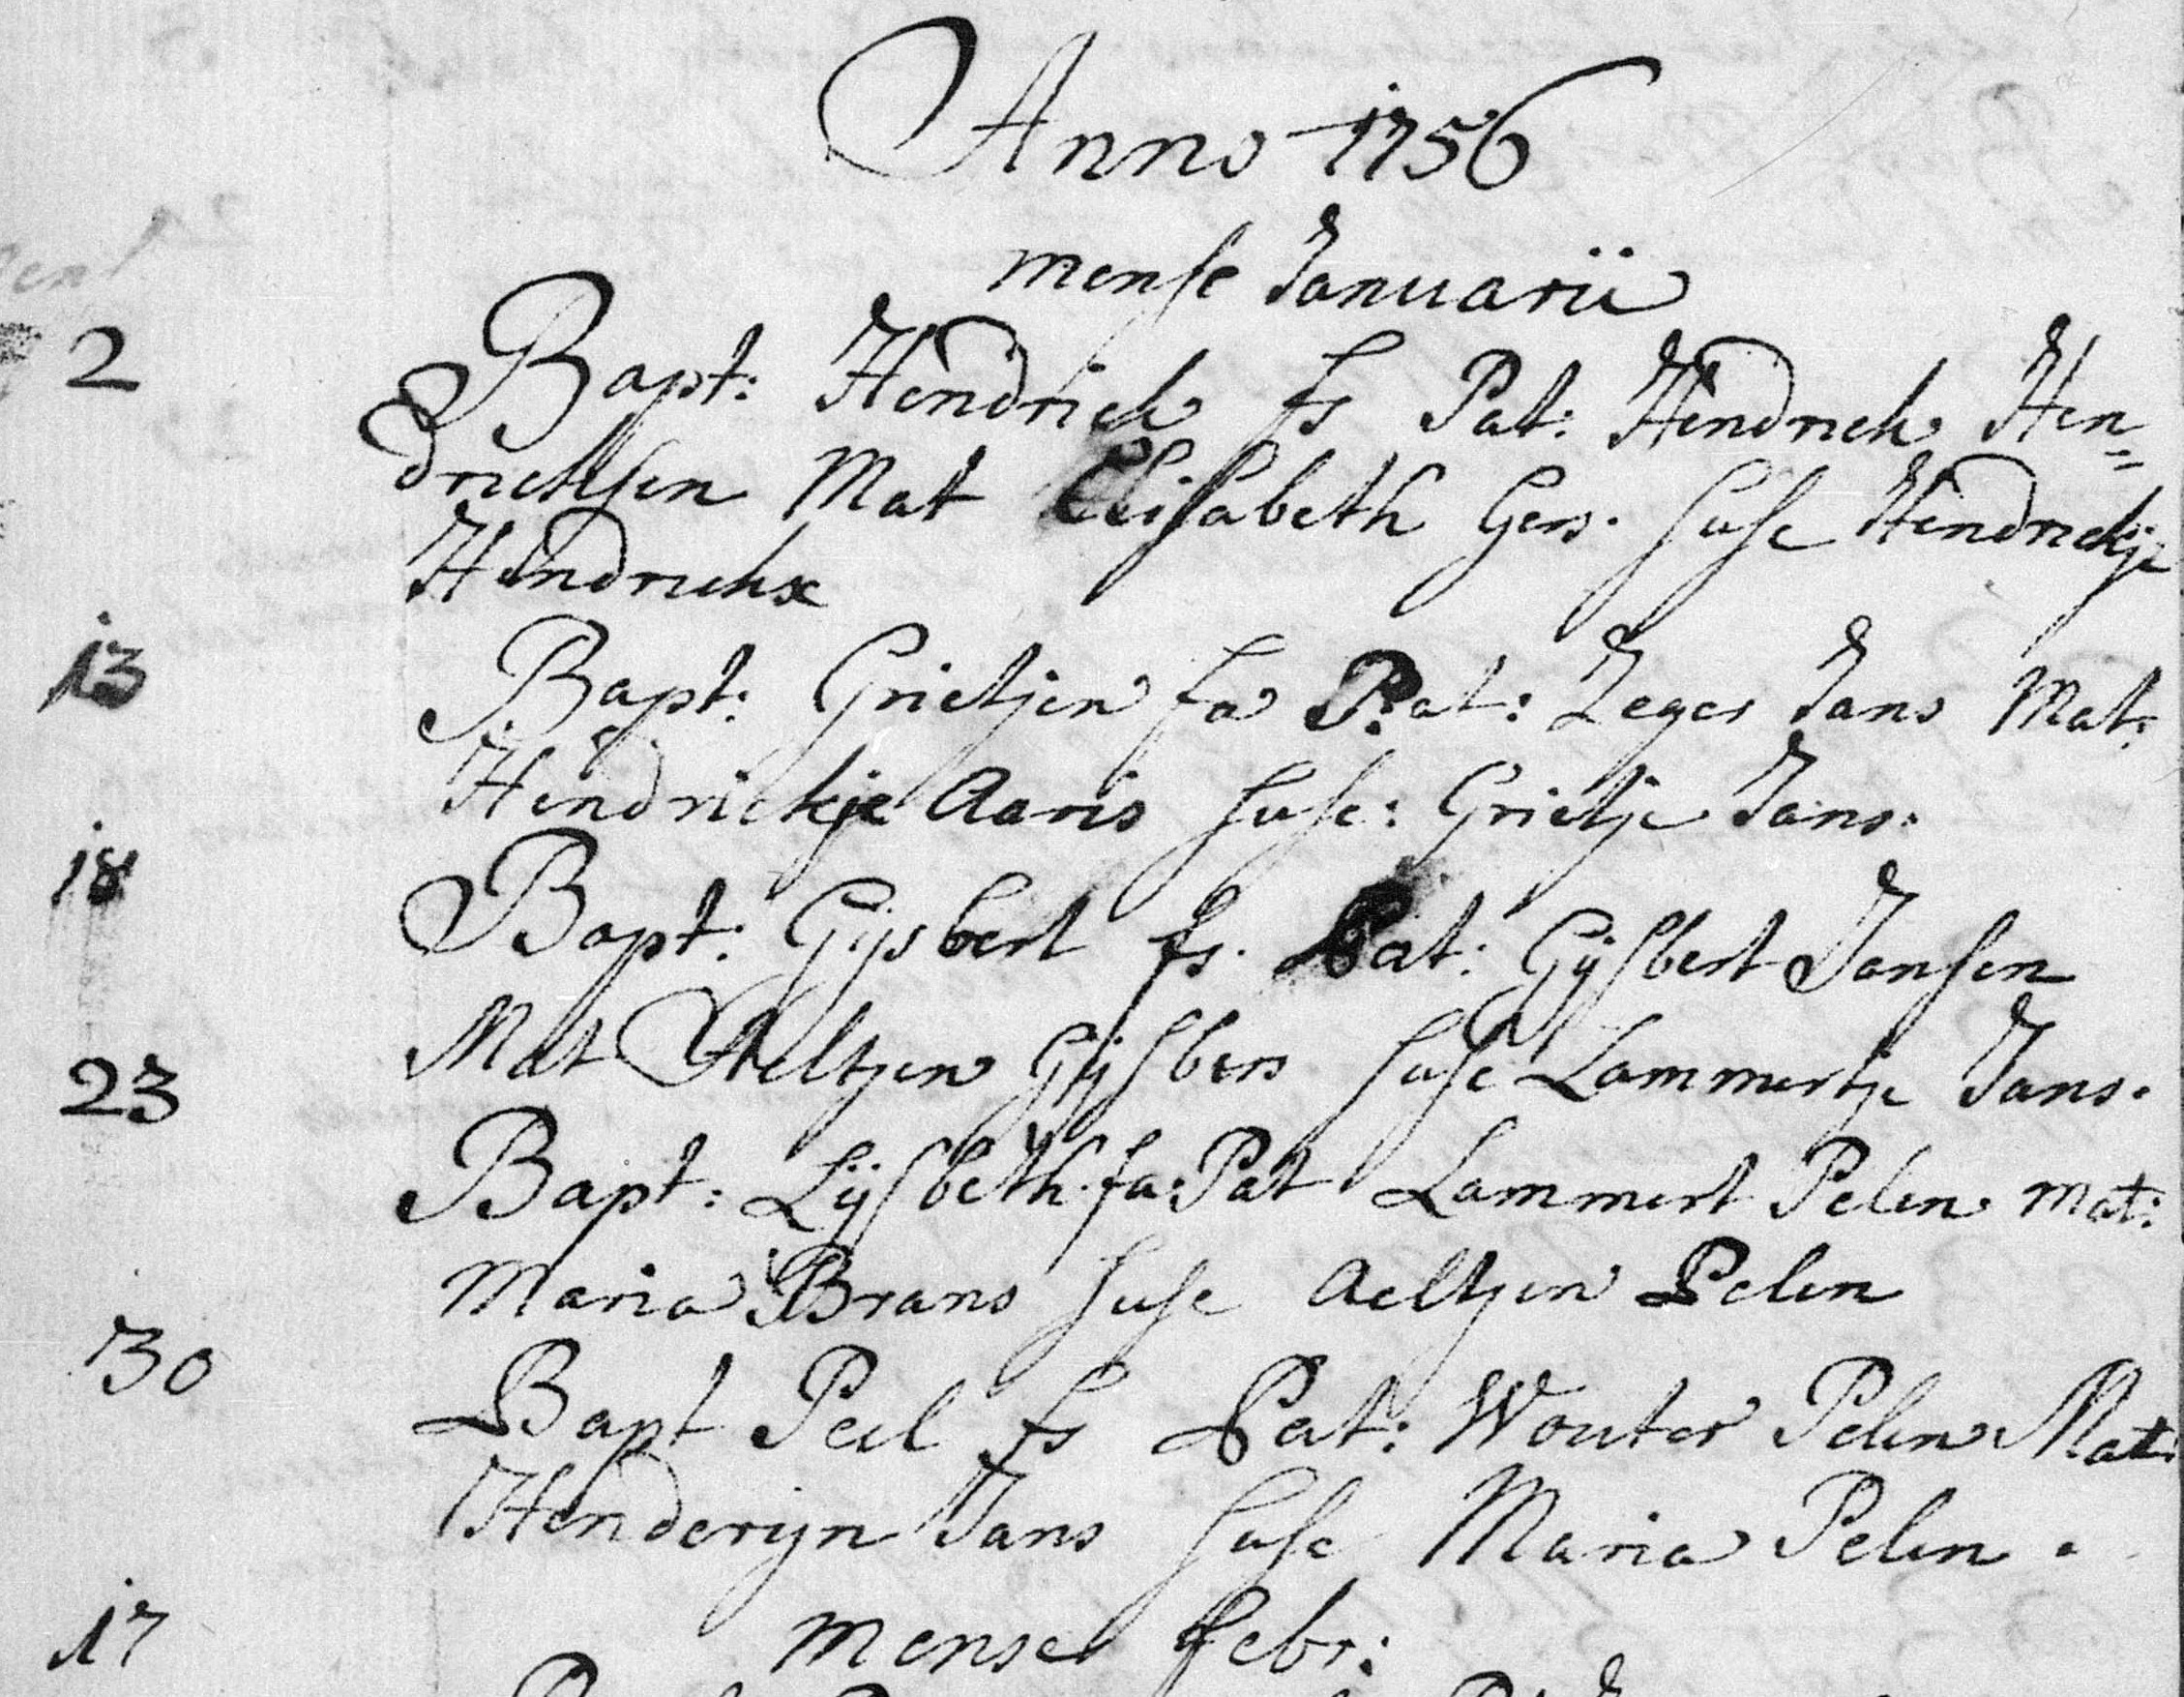 Anno 1756
mense Januarii
2 Bapt: Hendrick fs Pat: Hendrick Hen=
dricksen Mat Elisabeth Gers. susc Hendrickje
Hendricks
13 Bapt: Grietjen fa Pat: Zeger Jans Mat:
Hendrickje Aaris susc: Grietje Jans.
18 Bapt: Gijsbert fs. Pat: Gijsbert Jansen
Mat Aeltjen Gijsbers susc Lammertje Jans.
23 Bapt: Lijsbeth fa: Pat Lammert Pelen mat:
Maria Brans susc Aeltjen Pelen
30 Bapt Peel fs Pat: Wouter Pelen Mat:
Henderijn Jans susc Maria Pelen.
17 mense febr: